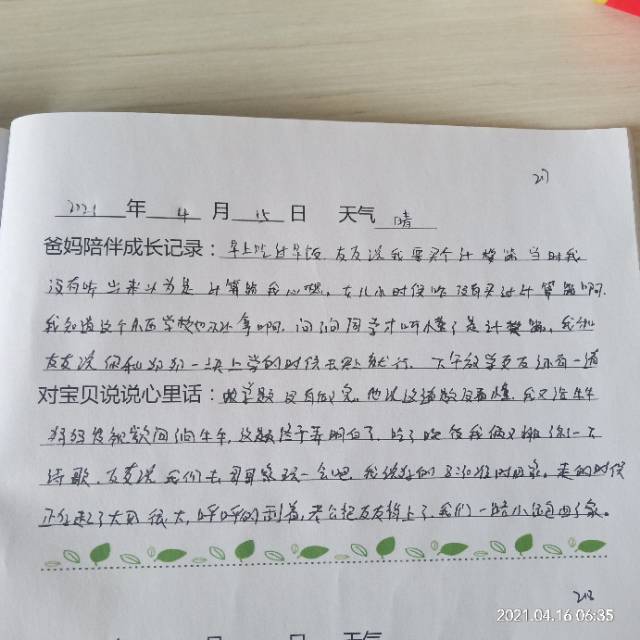 217
2021年 4 月 15 日 天气 晴
爸妈陪伴成长记录：早上吃过早饭 友友说我要买个计算器 当时我
没有听出来以为是计算器我心想，在儿小时候咋没有买过计算器啊.
我知道这个东西学校也不让拿啊. 问 同学才 是计 器，我和
友友说你和 一块上学的时候去 就行. 下午放学友友还有一道
对宝贝说说心里话： 数学题没有做完，他说这道题没看懂，我又给牛牛
妈妈发视频问问牛牛，这题终于弄明白了，吃了晚饭我俩又 一下
诗歌，友友说我们去 家玩一会吧，我说好的 8:30准时回家。来的时候
正好起了大风很大，呼呼的刮着，老公把友友 上了，我们一路小跑回了家。
218
2021.04.16 06:35
年 月 日 天气